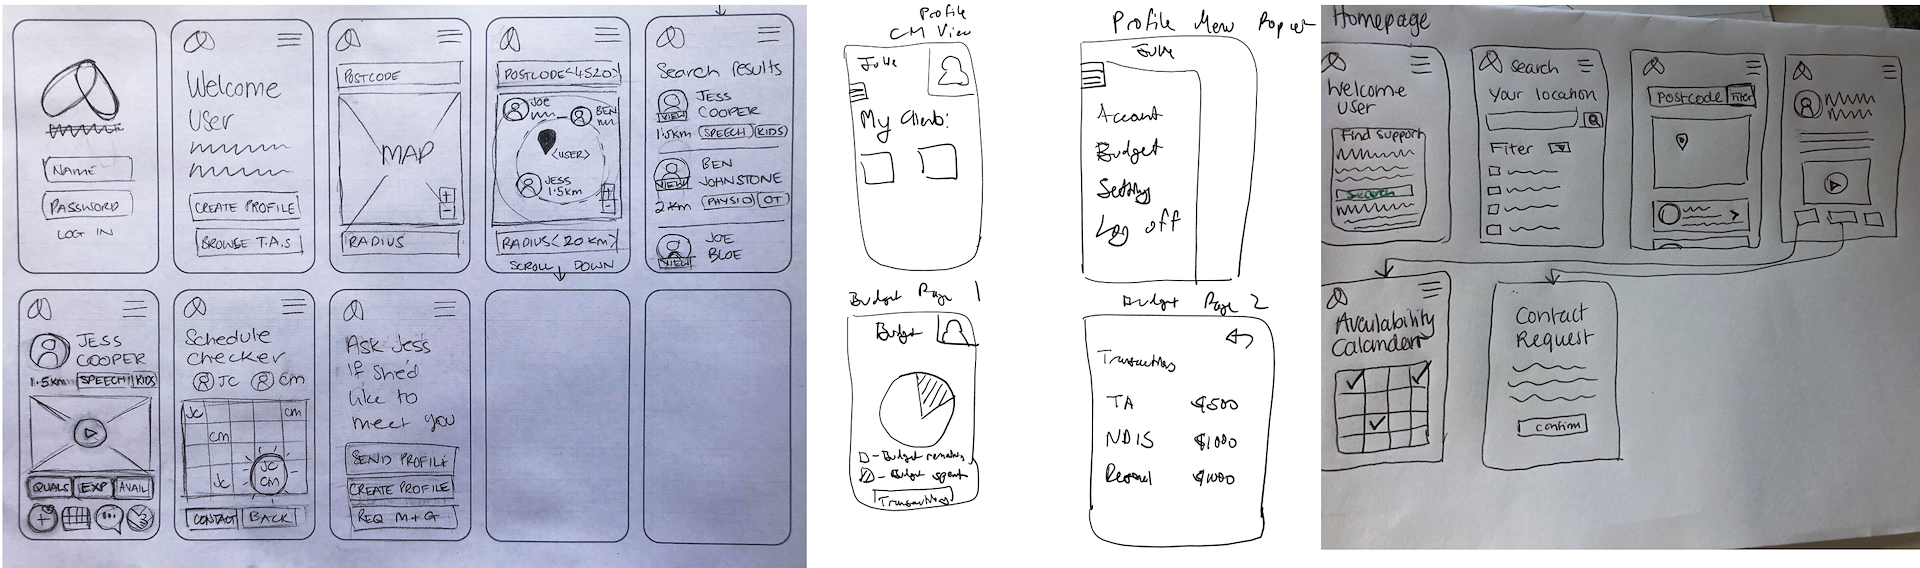 NAME
PASSWORD
LOG IN
Welcome
User
CREATE PROFILE
BROWSE T.A.S
POSTCODE
MAP
+
-
RADIUS
POSTCODE<4520>
Joe
BEN
<USER>
JESS
1.5km
+
-
RADIUS<20km>
SCROLL DOWN
Search results
JESS
COOPER
VIEW
1.5km SPEECH KIDS
BEN
JOHNSTONE
VIEW
2km PHYSIO OT
JOE
BLOE
VIEW
JESS
COOPER
1.5km SPEECH KIDS
QUALS EXP AVAIL
+
Schedule
checker
JC CM
JC CM
CM
JC
JC
CM
CONTACT BACK
Ask Jess
if shed
like to
meet you
SEND PROFILE
CREATE PROFILE
REQ M+G
Profile
CM View
My Client:
Profile Menu Popout
Account
Budget
Setting
Log off
Budget Page 1
Budget
- Budget remains
- Budget spent
Transactions
Budget Page 2
Transactions
TA $500
NDIS $1000
$1000
Homepage
Welcome
User
Find support
Search
Search
Your location
Fiter
Postcode Fiter
Availability
Calander
Contact
Request
Confirm